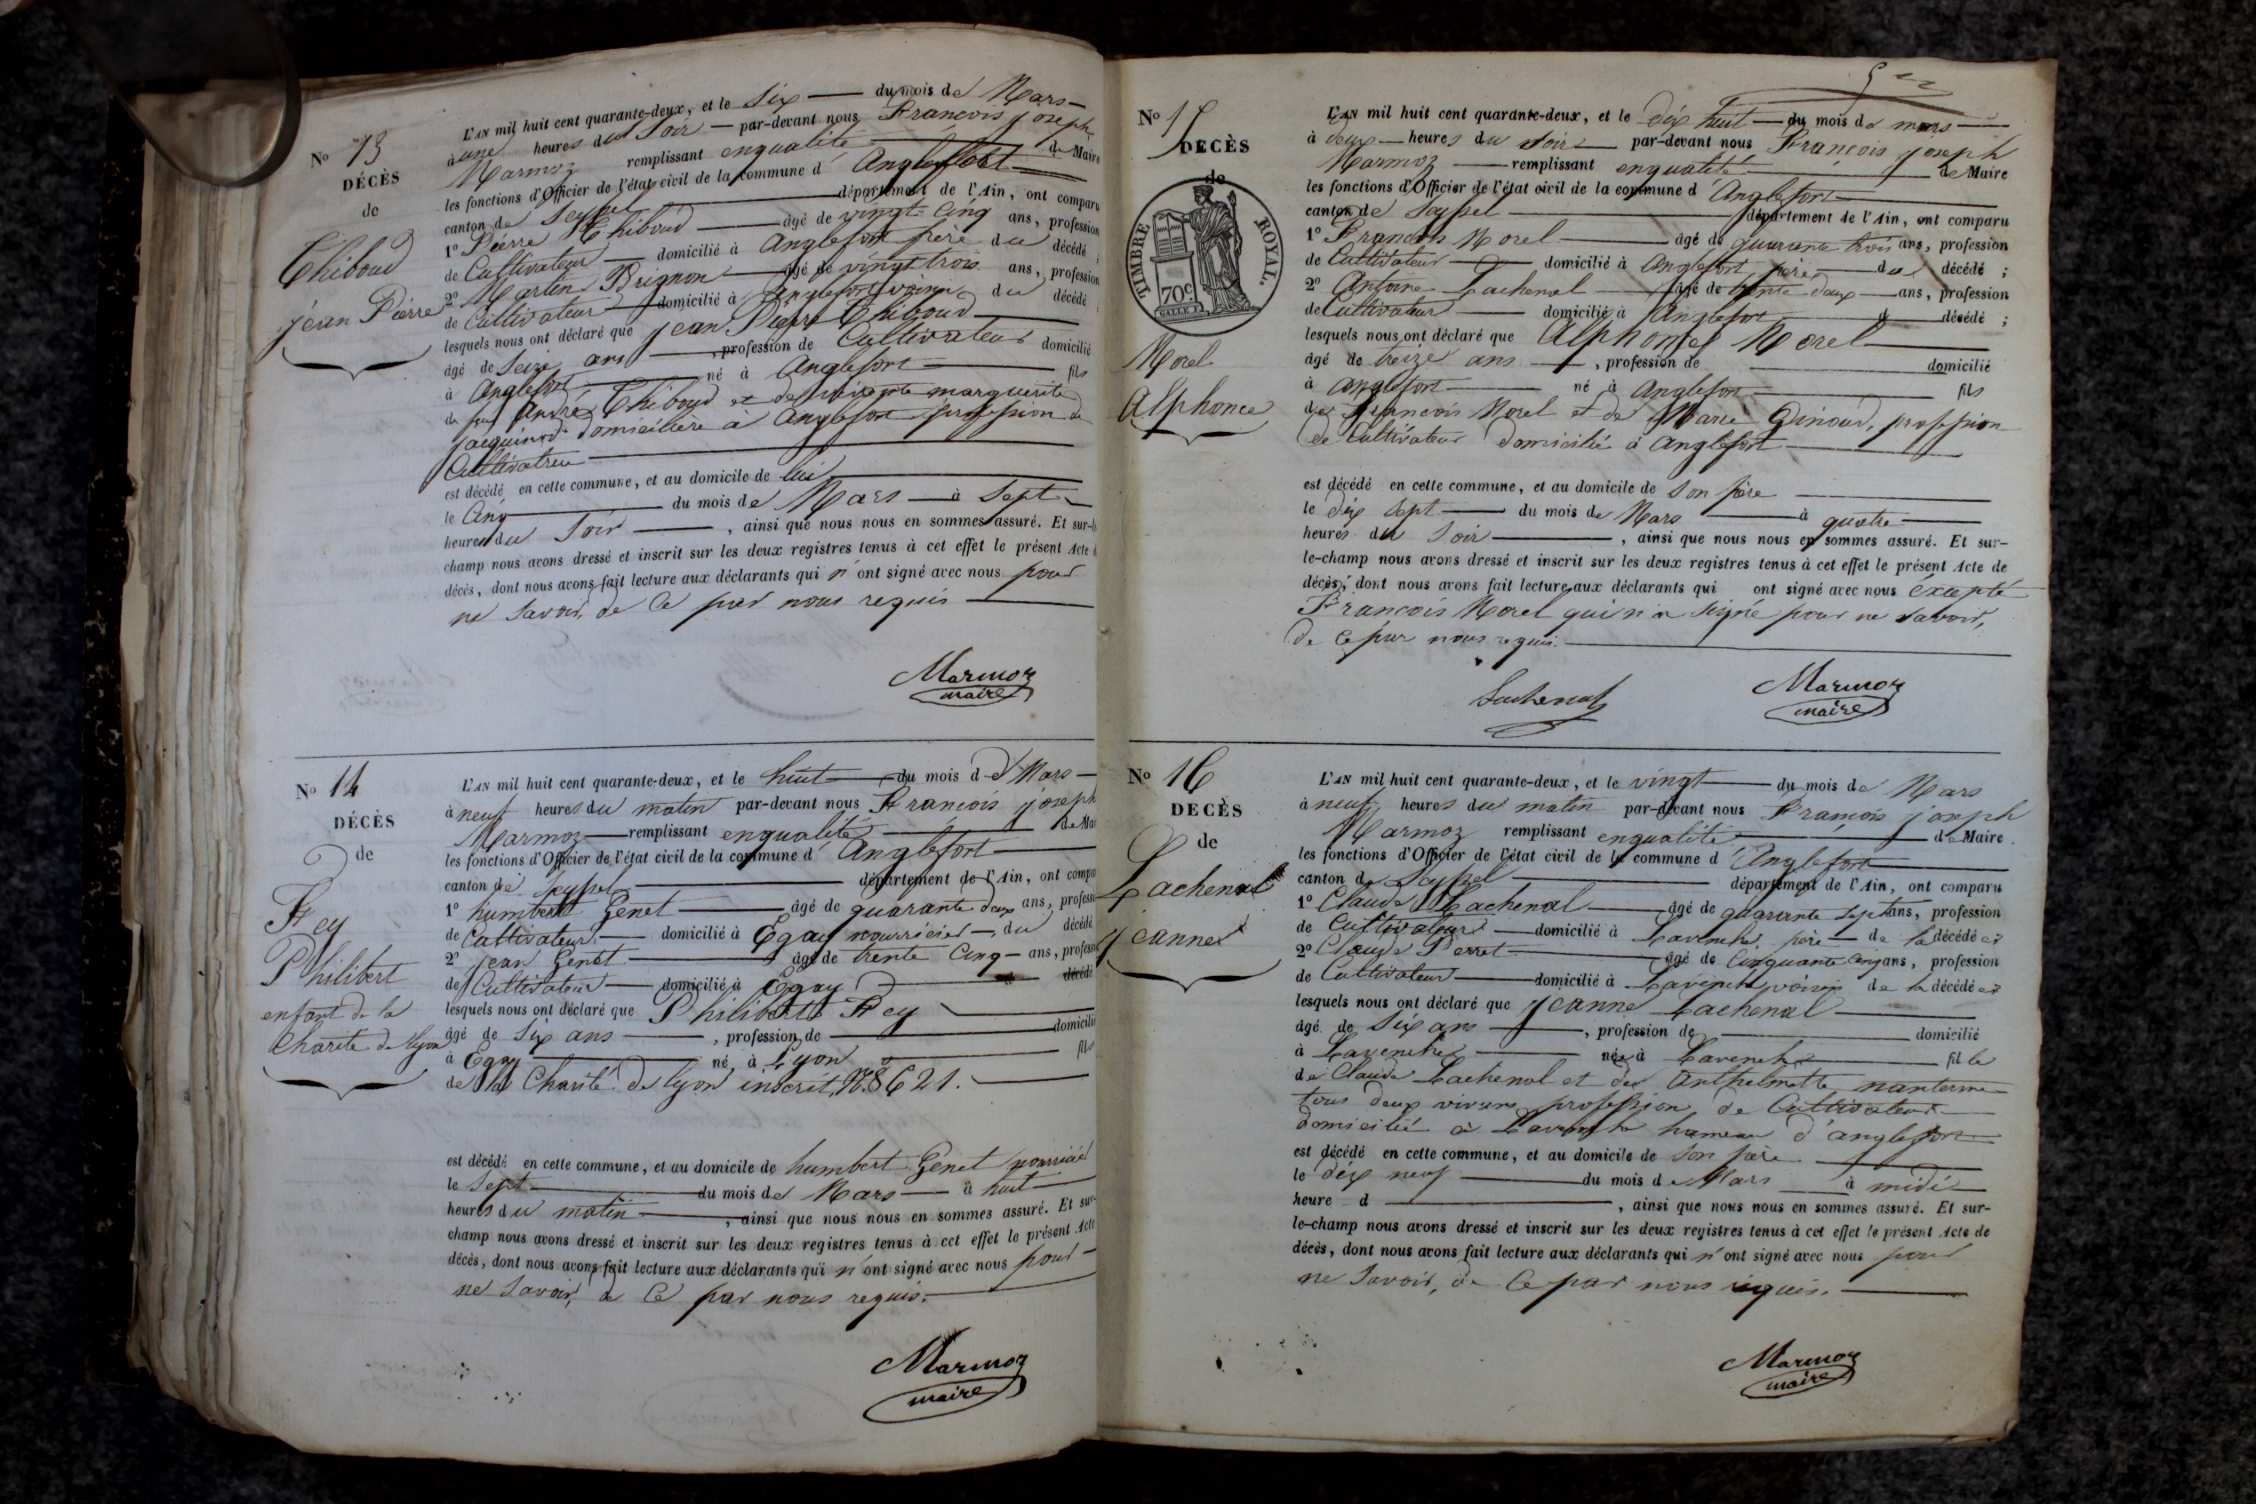 No 13
DÉCÈS
de
Thiboud
jean Pierre
L'AN mil huit cent quarante-deux, et le Six du mois de Mars
à une heures du Soir par-devant nous François joseph
Marmoz remplissant enqualité de Maire
les fonctions d'Officier de l'état civil de la commune d Anglefort
canton de Seyssel département de l'Ain, ont comparu
1° Pierre Thiboud âgé de vingt-Cinq ans, profession
de Cultivateur domicilié à Anglefort frère du décédé ;
2° Martin Brignon âgé de vingt trois ans, profession
de Cultivateur domicilié à Anglefort voisin du décédé ;
lesquels nous ont déclaré que jean Pierre Thiboud
âgé de Seize ans , profession de Cultivateur domicilié
à Anglefort né à Anglefort fils
de feu André Thiboud et de vivante marguerite
jacquinod domiciliere à Anglefort profession de
Cultivatrice
est décédé en cette commune, et au domicile de lui
le Cinq du mois de Mars à Sept
heures du Soir , ainsi que nous nous en sommes assuré. Et sur-le
champ nous avons dressé et inscrit sur les deux registres tenus à cet effet le présent Acte d
décès, dont nous avons fait lecture aux déclarants qui n' ont signé avec nous pour
ne Savoir, de Ce par nous requis
Marmoz
maire
No 14
DÉCÈS
de
Frey
Philibert
enfant de la
Charité de lyon
L'AN mil huit cent quarante-deux, et le huit du mois de Mars
à neuf heures du matin par-devant nous François joseph
Marmoz remplissant enqualité de Mai
les fonctions d'Officier de l'état civil de la commune d Anglefort
canton de Seyssel département de l'Ain, ont compa
1° humbert Genet âgé de quarante deux ans, profess
de Cultivateur domicilié à Egay nourricier du décédé
2° jean Genet âgé de trente Cinq ans, profess
de Cultivateur domicilié à Egay d décédé
lesquels nous ont déclaré que Philibert Frey
âgé de Six ans , profession de domicilié
à Egay né à Lyon fils
de la Charité de lyon inscrit, N° 8621.
est décédé en cette commune, et au domicile de humbert Genet nourricié
le Sept du mois de Mars à huit
heures du matin , ainsi que nous nous en sommes assuré. Et sur-
champ nous avons dressé et inscrit sur les deux registres tenus à cet effet le présent Acte
décès, dont nous avons fait lecture aux déclarants qui n' ont signé avec nous pour
ne Savoir, de Ce par nous requis.
Marmoz
maire
No 15
DÉCÈS
de
TIMBRE ROYAL.
70c
Morel
Alphonce
L'AN mil huit cent quarante-deux, et le dix huit du mois de mars
à deux heures du Soir par-devant nous François joseph
Marmoz remplissant enqualité de Maire
les fonctions d'Officier de l'état civil de la commune d Anglefort
canton de Seyssel département de l'Ain, ont comparu
1° François Morel âgé de quarante trois ans, profession
de Cultivateur domicilié à Anglefort père du décédé ;
2° Antoine Lachenal âgé de trente deux ans, profession
de Cultivateur domicilié à Anglefort d décédé ;
lesquels nous ont déclaré que Alphonse Morel
âgé de treize ans , profession de domicilié
à anglefort né à Anglefort fils
de François Morel et de Marie Ginoud, profession
de Cultivateur domicilié à Anglefort
est décédé en cette commune, et au domicile de Son père
le dix Sept du mois de Mars à quatre
heures du Soir , ainsi que nous nous en sommes assuré. Et sur-
le-champ nous avons dressé et inscrit sur les deux registres tenus à cet effet le présent Acte de
décès, dont nous avons fait lecture aux déclarants qui ont signé avec nous éxcepté
François Morel qui n'a Signé pour ne Savoir,
de Ce par nous requis.
Lachenal
Marmoz
maire
No 16
DÉCÈS
de
Lachenal
jeanne
L'AN mil huit cent quarante-deux, et le vingt du mois de Mars
à neuf heures du matin par-devant nous François joseph
Marmoz remplissant enqualité de Maire
les fonctions d'Officier de l'état civil de la commune d Anglefort
canton de Seyssel département de l'Ain, ont comparu
1° Claude Lachenal âgé de quarante Sept ans, profession
de Cultivateur domicilié à Lavenche père de la décédé es
2° Claude Perret âgé de Cinquante Cinq ans, profession
de Cultivateur domicilié à Lavenche voisin de la décédé es
lesquels nous ont déclaré que jeanne Lachenal
âgé de Six ans , profession de domicilié
à Lavenche née à Lavenche fille
de Claude Lachenal et de Anthelmette nanterme
tous deux vivans profession de Cultivateur
domicilié à Lavenche hameau d'anglefort
est décédé en cette commune, et au domicile de Son père
le dix neuf du mois de Mars à midi
heure d , ainsi que nous nous en sommes assuré. Et sur-
le-champ nous avons dressé et inscrit sur les deux registres tenus à cet effet le présent Acte de
décès, dont nous avons fait lecture aux déclarants qui n' ont signé avec nous pour
ne Savoir, de Ce par nous requis.
Marmoz
maire